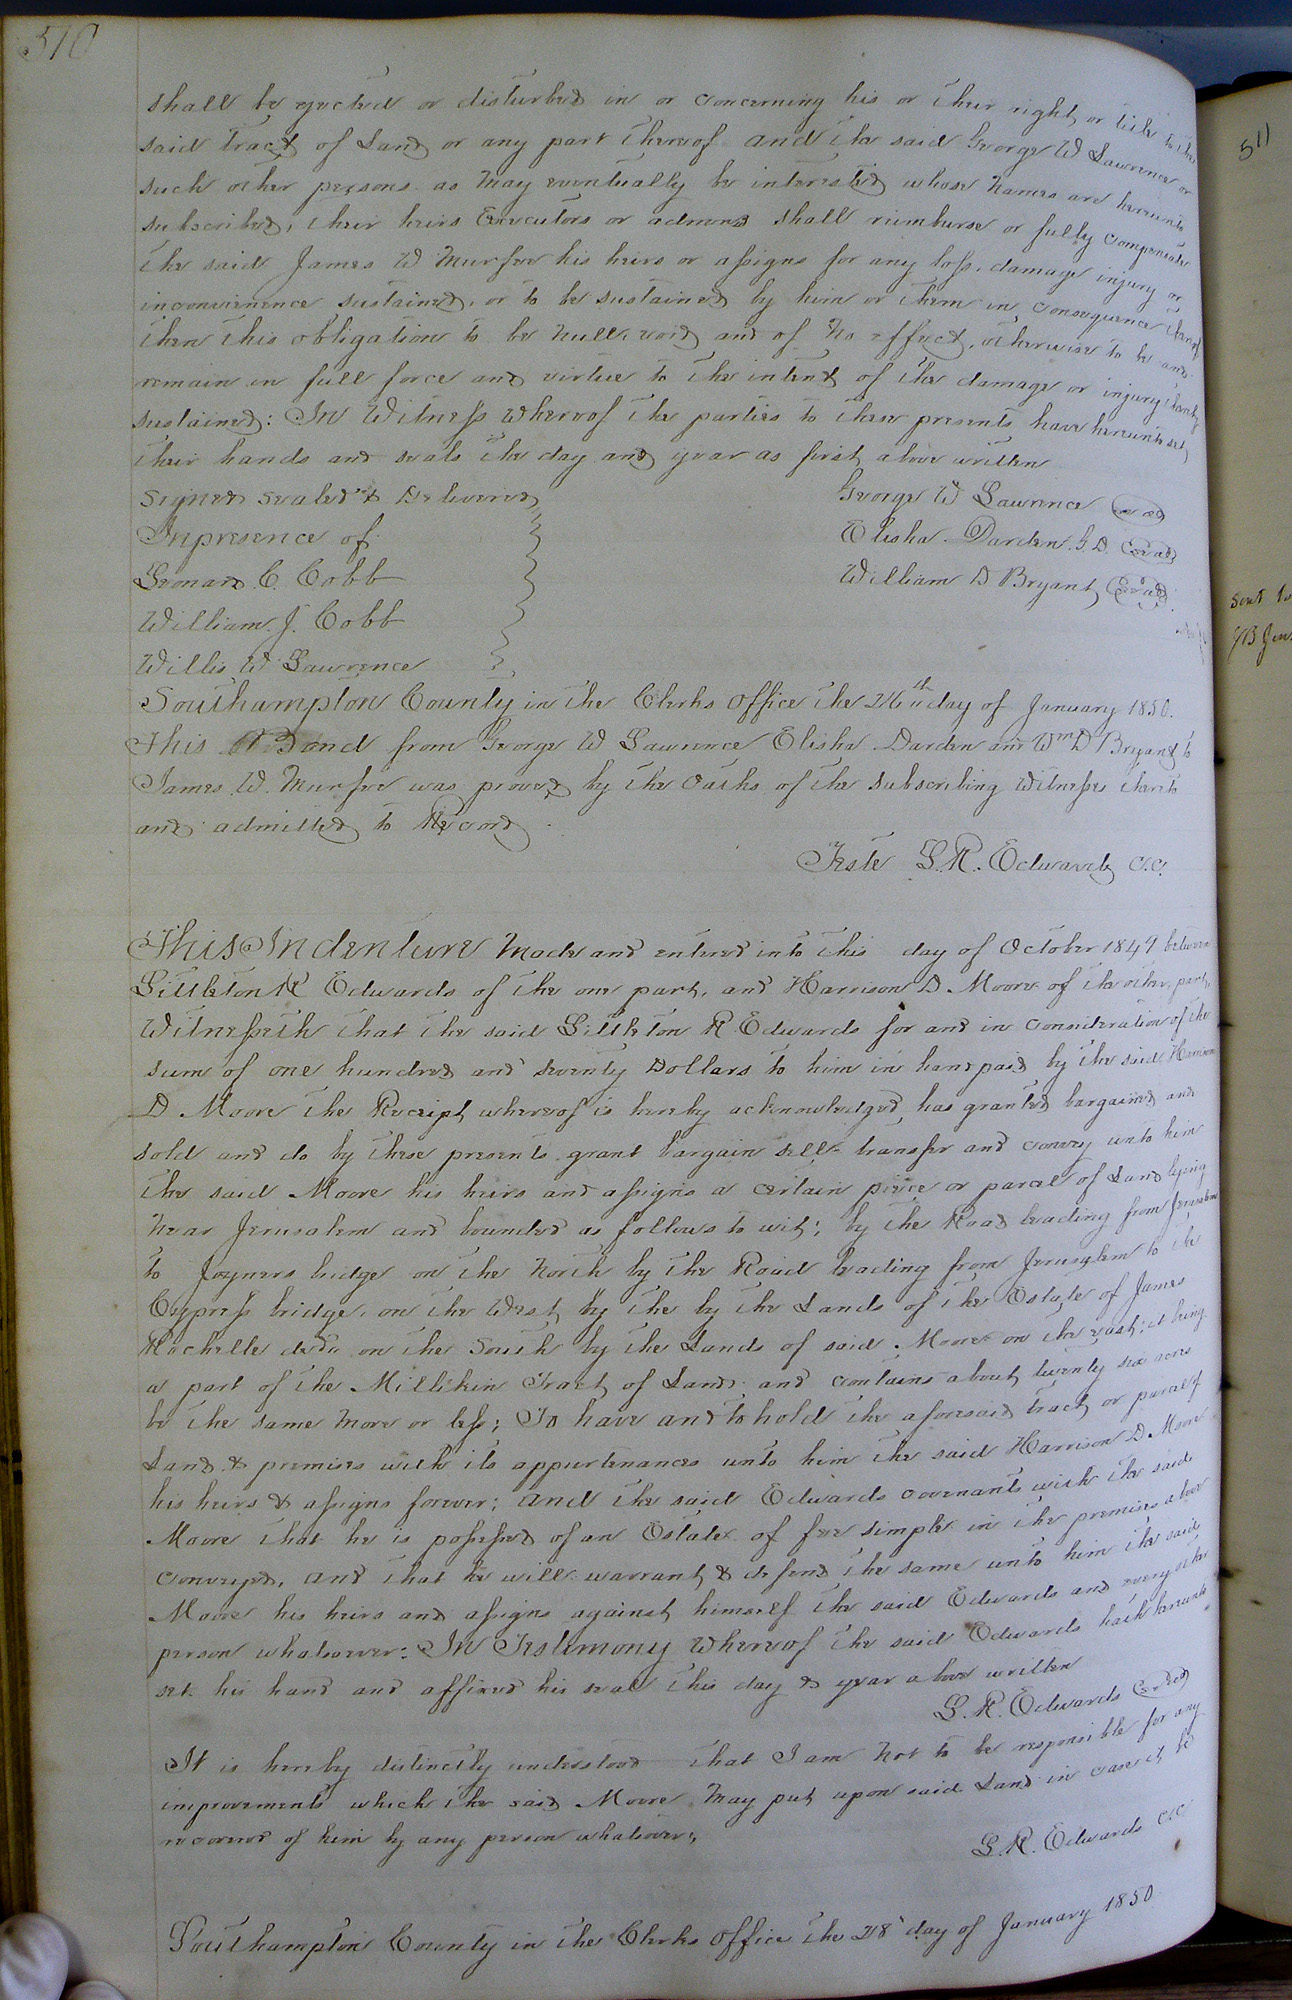 510
shall be ejected or disturbed in or concerning his or their right or title to the
said tract of Land or any part thereof and the said George W Lawrence or
such other persons as may eventually be interested whose names are hereunto
subscribed, their heirs Executors or admns shall reimburse or fully compensate
the said James W Murfee his heirs or assigns for any loss, damage injury or
inconvenience sustained, or to be sustained by him or them in consequence thereof
then this obligation to be null, void and of no effect, otherwise to be and
remain in full force and virtue to the intent of the damage or injury thereby
sustained: In Witness whereof the parties to these presents have hereunto set
their hands and seals the day and year as first above written
Signed sealed & Delivered
George W Lawrence seal
In presence of
Elisha Darden. G. D. seal
Leonard C. Cobb
William D Bryant seal
William. J. Cobb
Willis W Lawrence
Southampton County in the Clerks Office the 26th day of January 1850.
This Bond from George W Lawrence Elisha Darden and Wm D Bryant to
James. W. Murfee was proved by the oaths of the subscribing witnesses thereto
and admitted to Record
Teste L. R. Edwards C.C.
This Indenture Made and entered into this day of October 1849 between
Littleton R Edwards of the one part, and Harrison D Moore of the other part,
Witnesseth that the said Littleton R Edwards for and in consideration of the
sum of one hundred and seventy Dollars to him in hand paid by the said Harrison
D Moore the Receipt whereof is hereby acknowledged has granted bargained and
sold and do by these presents grant bargain sell transfer and convey unto him
the said Moore his heirs and assigns a certain piece or parcel of Land lying
near Jerusalem and bounded as follows to wit; by the Road leading from Jerusalem
to Joyners bridge on the North by the Road leading from Jerusalem to the
Cypress bridge, on the West by the by the Lands of the Estate of James
Rochelle decd on the South by the Lands of said Moore on the east; it being
a part of the Millikin Tract of Land; and contains about twenty six acres
be the same more or less; To have and to hold the aforesaid tract or parcel of
Land & premises with its appurtenances unto him the said Harrison D. Moore
his heirs & assigns forever; and the said Edwards covenants with the said
Moore that he is possessed of an Estate of fee simple in the premises above
conveyed, and that he will warrant & defend the same unto him the said
Moore his heirs and assigns against himself the said Edwards and every other
person whatsoever: In Testimony whereof the said Edwards hath hereunto
set his hand and affixed his seal this day & year above written
L. R. Edwards seal
It is hereby distinctly understood that I am not to be responsible for any
improvements which the said Moore may put upon said Land in case it be
recovered of him by any person whatsoever,
L. R. Edwards C.C
Southampton County in the Clerks Office the 28 day of January 1850
511